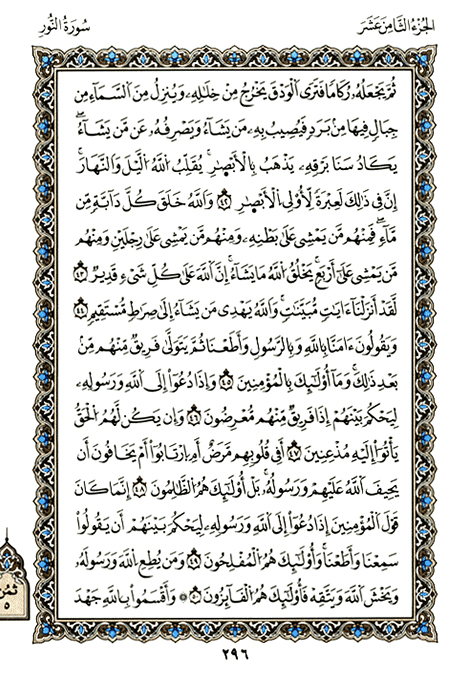 الجُزءُ الثَّامِنَ عَشَرَ
سُورَةُ النُّور
ثُمَّ يَجْعَلُهُۥ رُكَاماً فَتَرَى ٱلْوَدْقَ يَخْرُجُ مِنْ خِلَٰلِهِۦ وَيُنَزِّلُ مِنَ ٱلسَّمَآءِ مِن
جِبَالٍ فِيهَا مِنۢ بَرَدٍ فَيُصِيبُ بِهِۦ مَن يَشَآءُ وَيَصْرِفُهُۥ عَن مَّن يَشَآءُ
يَكَادُ سَنَا بَرْقِهِۦ يَذْهَبُ بِالْأَبْصَٰرِ يُقَلِّبُ ٱللَّهُ ٱلَّيْلَ وَالنَّهَارَ
إِنَّ فِي ذَٰلِكَ لَعِبْرَةً لِّأُوْلِي ٱلْأَبْصَٰرِ ٤٢ وَاللَّهُ خَلَقَ كُلَّ دَآبَّةٍ مِّن
مَّآءٍ فَمِنْهُم مَّن يَمْشِي عَلَىٰ بَطْنِهِۦ وَمِنْهُم مَّن يَمْشِي عَلَىٰ رِجْلَيْنِ وَمِنْهُم
مَّن يَمْشِي عَلَىٰ أَرْبَعٍ يَخْلُقُ ٱللَّهُ مَا يَشَآءُ إِنَّ ٱللَّهَ عَلَىٰ كُلِّ شَيْءٍ قَدِيرٌ ٤٣
لَّقَدْ أَنزَلْنَآ ءَايَٰتٍ مُّبَيَّنَٰتٍ وَاللَّهُ يَهْدِي مَن يَشَآءُ إِلَىٰ صِرَٰطٍ مُّسْتَقِيمٍ ٤٤
وَيَقُولُونَ ءَامَنَّا بِاللَّهِ وَبِالرَّسُولِ وَأَطَعْنَا ثُمَّ يَتَوَلَّىٰ فَرِيقٌ مِّنْهُم مِّنۢ
بَعْدِ ذَٰلِكَ وَمَآ أُوْلَٰٓئِكَ بِالْمُؤْمِنِينَ ٤٥ وَإِذَا دُعُوٓاْ إِلَى ٱللَّهِ وَرَسُولِهِۦ
لِيَحْكُمَ بَيْنَهُمْ إِذَا فَرِيقٌ مِّنْهُم مُّعْرِضُونَ ٤٦ وَإِن يَكُن لَّهُمُ ٱلْحَقُّ
يَأْتُوٓاْ إِلَيْهِ مُذْعِنِينَ ٤٧ أَفِي قُلُوبِهِم مَّرَضٌ أَمِ ٱرْتَابُوٓاْ أَمْ يَخَافُونَ أَن
يَحِيفَ ٱللَّهُ عَلَيْهِمْ وَرَسُولُهُۥ بَلْ أُوْلَٰٓئِكَ هُمُ ٱلظَّٰلِمُونَ ٤٨ إِنَّمَا كَانَ
قَوْلَ ٱلْمُؤْمِنِينَ إِذَا دُعُوٓاْ إِلَى ٱللَّهِ وَرَسُولِهِۦ لِيَحْكُمَ بَيْنَهُمْ أَن يَقُولُواْ
سَمِعْنَا وَأَطَعْنَا وَأُوْلَٰٓئِكَ هُمُ ٱلْمُفْلِحُونَ ٤٩ وَمَن يُطِعِ ٱللَّهَ وَرَسُولَهُۥ
وَيَخْشَ ٱللَّهَ وَيَتَّقِهِ فَأُوْلَٰٓئِكَ هُمُ ٱلْفَآئِزُونَ ٥٠ ۞ وَأَقْسَمُواْ بِاللَّهِ جَهْدَ
ثمن
٥
٢٩٦